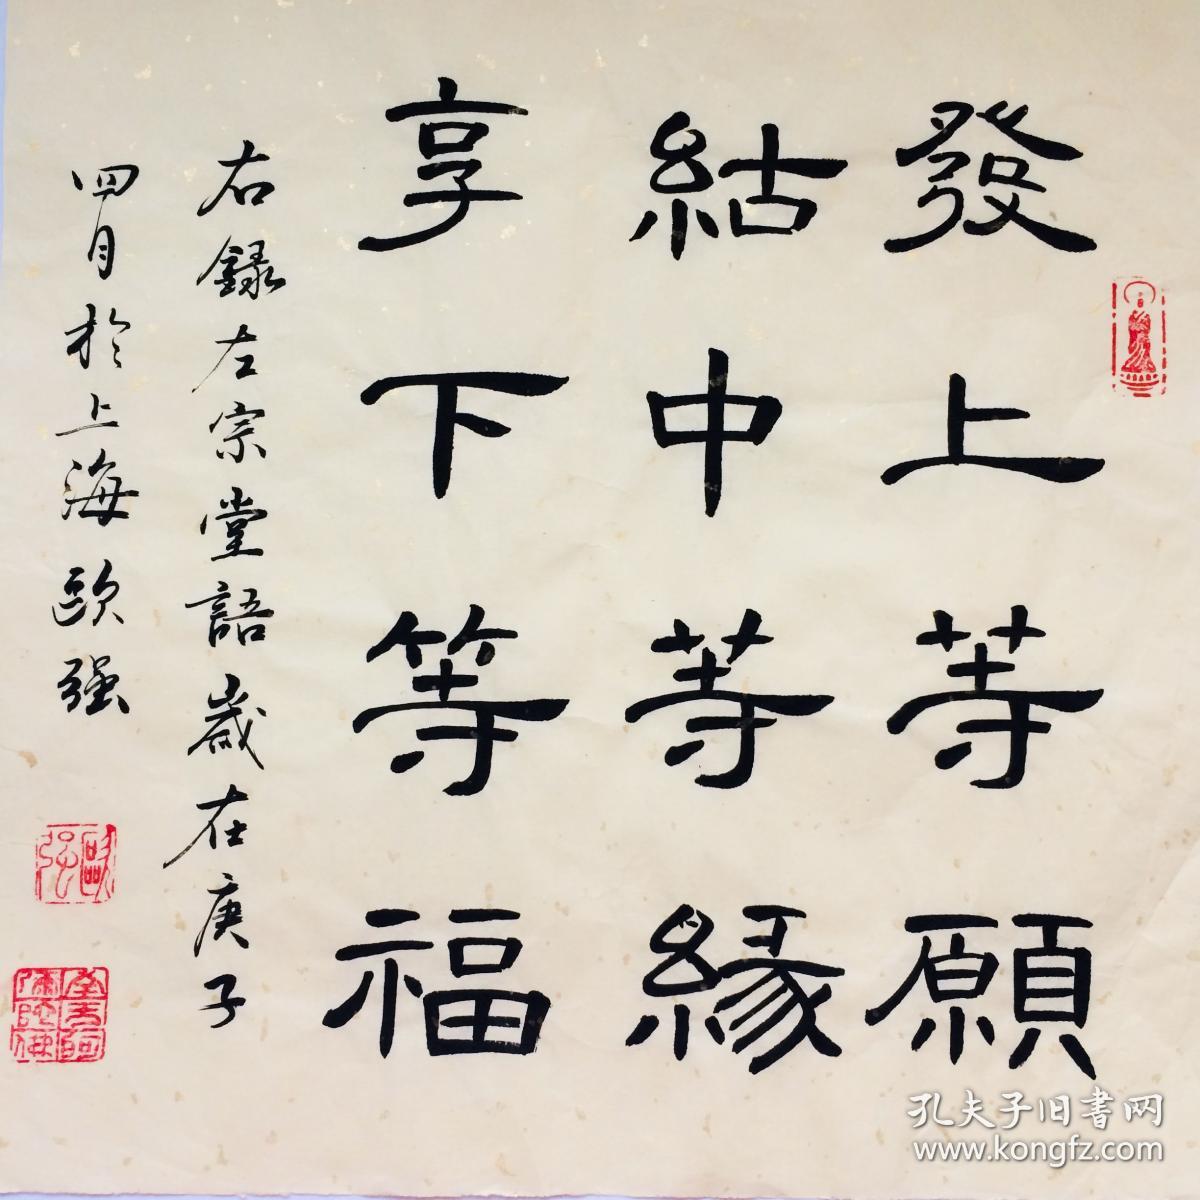 發上等願
結中等緣
享下等福
右録左宗堂語歲在庚子
四月於上海歐强
歐强
孔夫子旧書网
www.kongfz.com